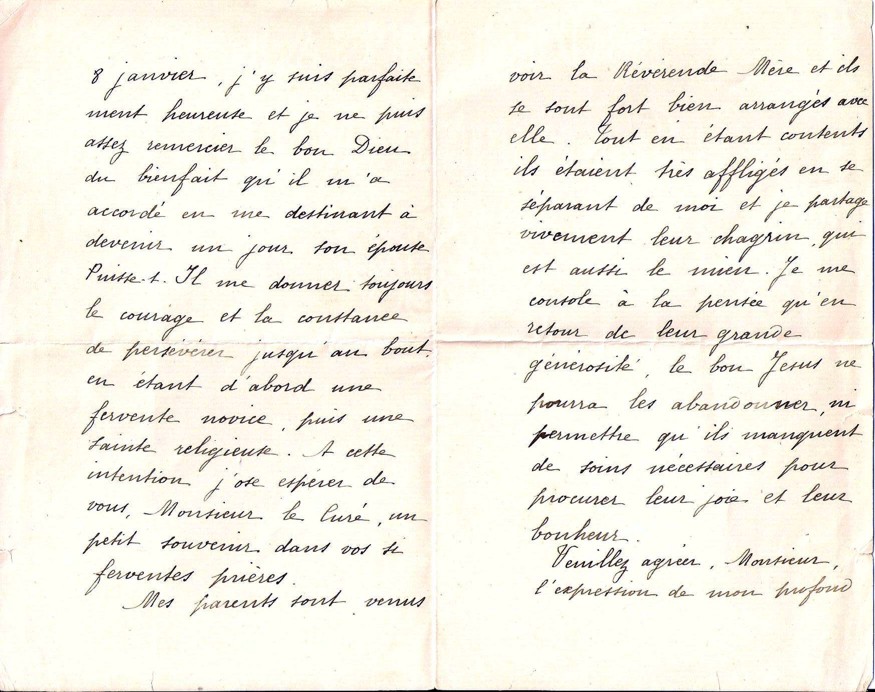 8 janvier, j'y suis parfaite
ment heureuse et je ne puis
assez remercier le bon Dieu
du bienfait qu'il m'a
accordé en me destinant à
devenir un jour son épouse
Puisse-t-Il me donner toujours
le courage et la constance
de persévérer jusqu'au bout,
en étant d'abord une
fervente novice, puis une
sainte religieuse. A cette
intention j'ose espérer de
vous, Monsieur le Curé, un
petit souvenir dans vos si
ferventes prières.
Mes parents sont venus
voir la Révérende Mère et ils
se sont fort bien arrangés avec
elle. Tout en étant contents
ils étaient très affligés en se
séparant de moi et je partage
vivement leur chagrin qui
est aussi le mien. Je me
console à la pensée qu'en
retour de leur grande
générosité, le bon Jesus ne
pourra les abandonner, ni
permettre qu'ils manquent
de soins nécessaires pour
procurer leur joie et leur
bonheur.
Veuillez agréer, Monsieur,
l'expression de mon profond